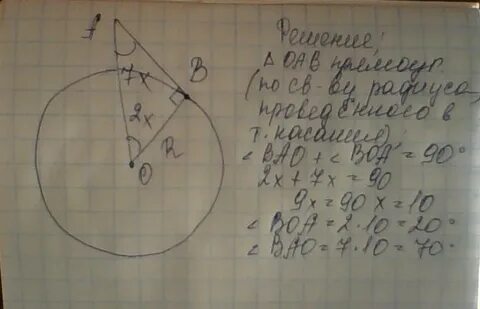 A
7x
B
2x
R
O
Решение:
Δ OAB прямоуг.
(по св-ву радиуса,
проведённого в
т. касания)
∠BAO + ∠BOA = 90°
2x + 7x = 90
9x = 90 x = 10
∠BOA = 2·10 = 20°
∠BAO = 7·10 = 70°